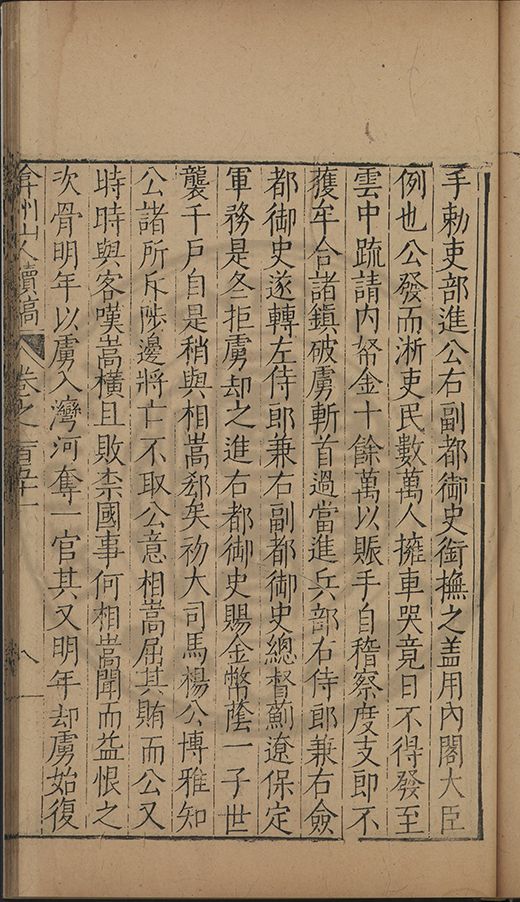 手勅吏部進公右副都御史銜撫之盖用內閣大臣
例也公發而淅吏民數萬人擁車哭竟日不得發至
雲中疏請内帑金十餘萬以賑手自稽察度支即不
獲牟合諸鎮破虜斬首過當進兵部右侍郎兼右僉
都御史遂轉左侍郎兼右副都御史總督薊遼保定
軍務是冬拒虜却之進右都御史賜金幣蔭一子世
襲千戶自是稍與相嵩郄矣初大司馬楊公博雅知
公諸所斥陟邊將亡不取公意相嵩屈其賄而公又
時時與客嘆嵩橫且敗柰國事何相嵩聞而益恨之
次骨明年以虜入灣河奪一官其又明年却虜始復
弇州山人續稿 卷之一百五十一 八